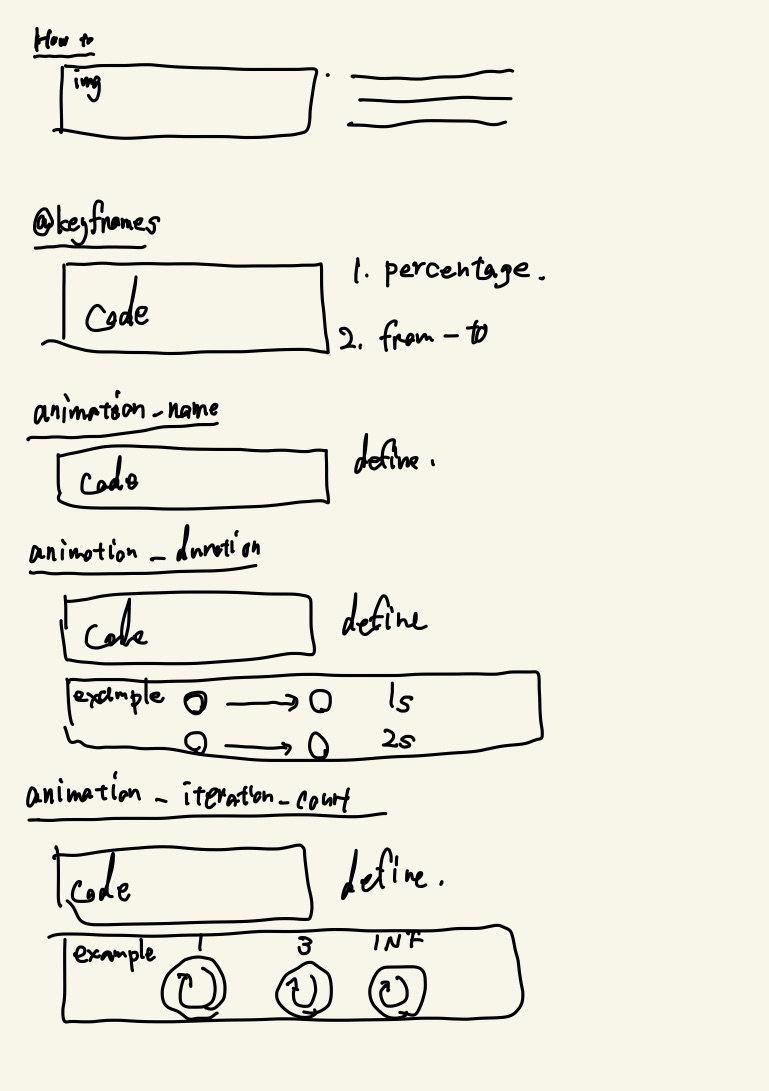 How to
img
@keyframes
code
1. percentage.
2. from - to
animation_name
code
define.
animation_duration
code
define
example 1s
2s
animation_iteration_count
code
define.
example 1 3 INF